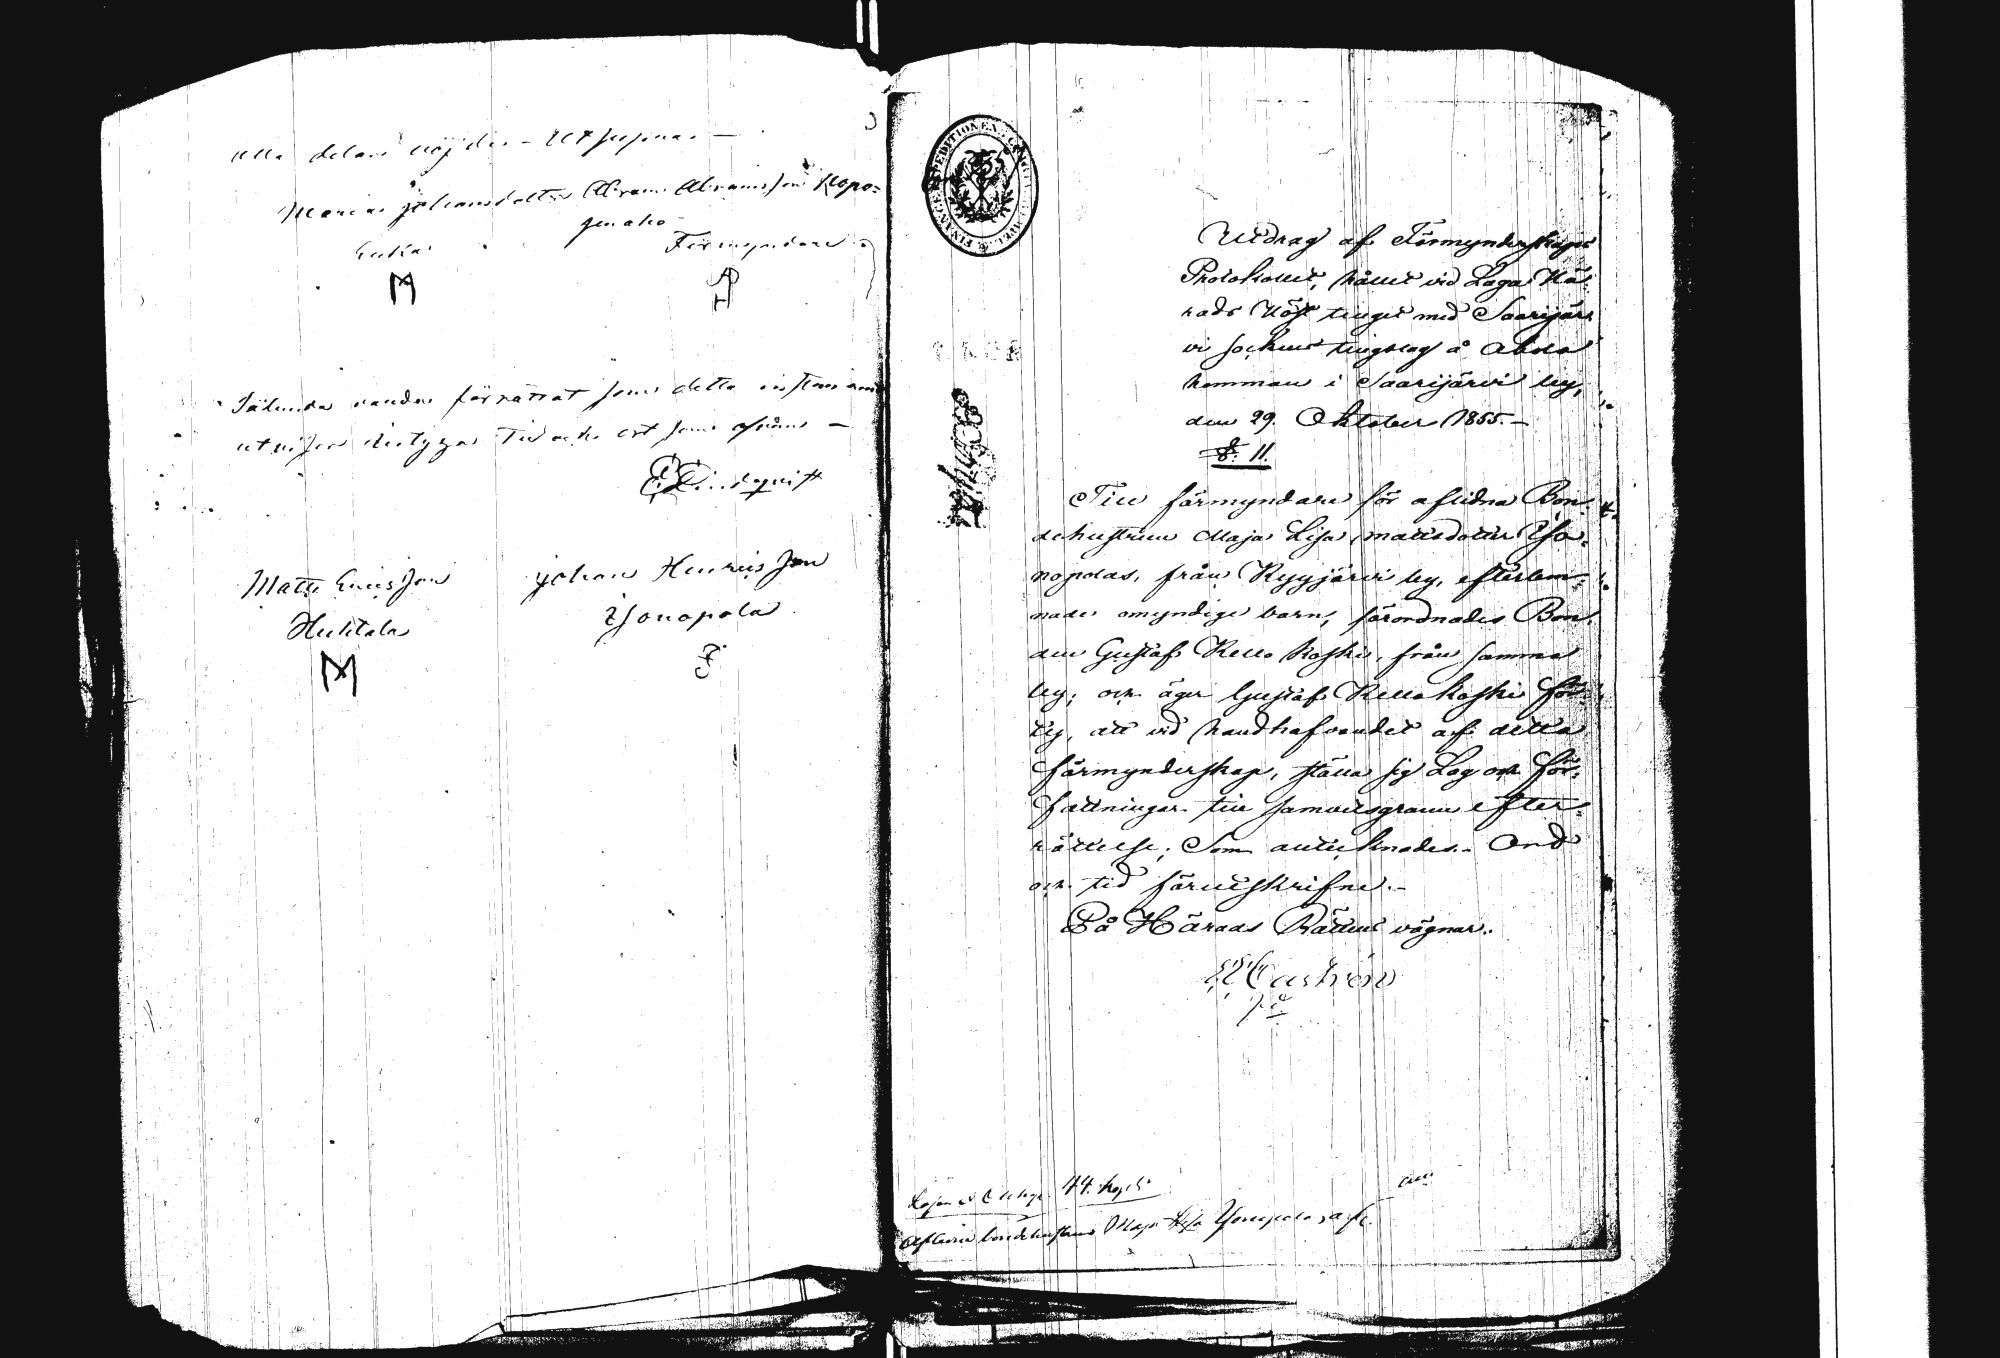 alla delar nöjder – Ut supra –
Maria Johansdotter Abram Abramsson Kopo-
senaho
Enka Förmyndare
Sålunda vara förrättat som detta instrument
utviser betygga Tid och ort som ofvan –
E Lindqvist
Matts Ericsson Johan Henricsson
Huhtala Isonopola
FINANCE EXPEDITIONEN
Utdrag af Förmynderskaps
Protokollet, hållet vid Laga Hä-
rads Höste tinget med Saarijär-
vi sockens tingslag å Ahola
hemman i Saarijärvi by,
den 29. Oktober 1855.–
§. 11.
Till förmyndare för aflidna Bon-
dehustrun Maja Lisa Mattsdotter Iso-
nopolas, från Kyyjärvi by, efterlem-
nade omyndige barn, förordnades Bon-
den Gustaf Kello koski, från samma
by; och äger Gustaf Kello koski för-
ty, att vid handhafvandet af detta
förmynderskap, ställa sig Lag och för-
fattningar till samvetsgrann efter-
rättelse; Som antecknades. Ort
och tid förutskrifne.–
På Härads Rättens vägnar.
Castrén
Lösen 44. kopek
Aflidne bondehustrun Maja Lisa